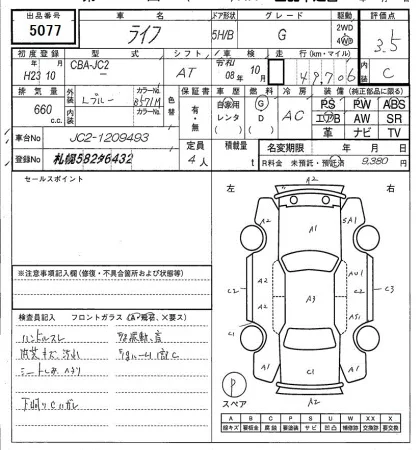 出品番号 車名 ドア形状 グレード 駆動 評価点
5077 ライフ 5H/B G 2WD 4WD 3.5
初度登録 型式 シフト 車検 走行(km・マイル) 内装
H23年10月 CBA-JC2 AT 令和08年10月 49,706 C
排気量 外装 Lブルー カラーNo. B571M 色替 保証書 車歴 燃料 冷房 装備(純正部品に限る)
660 c.c. 内装 カラーNo. 有・無 自家用 レンタ G D AC PS PW ABS
エアB AW SR
革 ナビ TV
車台No JC2-1209493 定員 積載量 名変期限 年 月 日
登録No 札幌582タ6432 4人 t R料金 未預託・預託済 9,380円
セールスポイント
左 右
※注意事項記入欄(修復・不具合箇所および状態等)
検査員記入 フロントガラス(A・飛石、×要ス)
ハンドルスレ
内装キズ、汚れ
下廻りCハガレ
A2
A2 A1 SA1
A2 AU1
C2 A2 A3 C3
C1
A1 C1 A1
A2
P
スペア
A B C P S U W X XX
線キズ 要板金 腐蝕 要塗装 サビ 凹凸 補修跡 交換跡 要交換